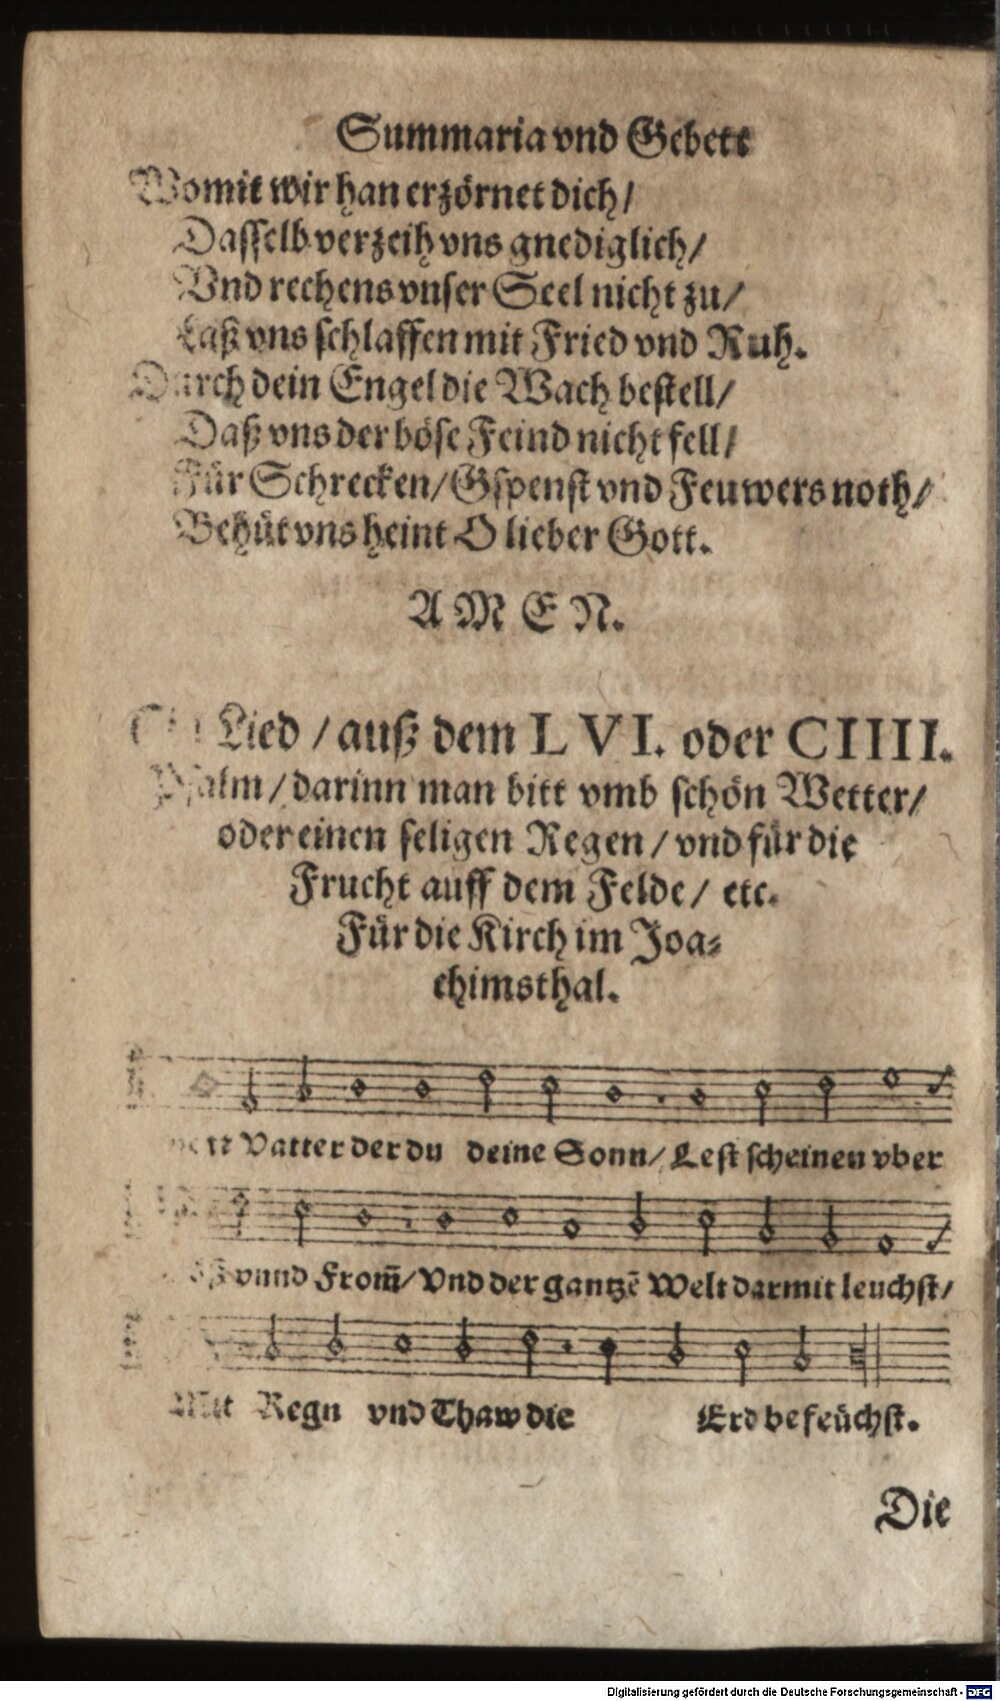 Summaria vnd Gebett
Womit wir han erzörnet dich/
Dasselb verzeih vns gnediglich/
Vnd rechens vnser Seel nicht zu/
Laß vns schlaffen mit Fried vnd Ruh.
Durch dein Engel die Wach bestell/
Daß vns der böse Feind nicht fell/
Für Schrecken/Gspenst vnd Feuwers noth/
Behüt vns heint O lieber Gott.
AMEN.
Lied / auß dem LVI. oder CIIII.
Psalm/ darinn man bitt vmb schön Wetter/
oder einen seligen Regen/ vnd für die
Frucht auff dem Felde/ etc.
Für die Kirch im Joa-
chimsthal.
Vatter der du deine Sonn/ Lest scheinen vber
vnnd From̃/ Vnd der gantzẽ Welt darmit leuchst/
Mit Regn vnd Thaw die Erd befeüchst.
Die
Digitalisierung gefördert durch die Deutsche Forschungsgemeinschaft - DFG